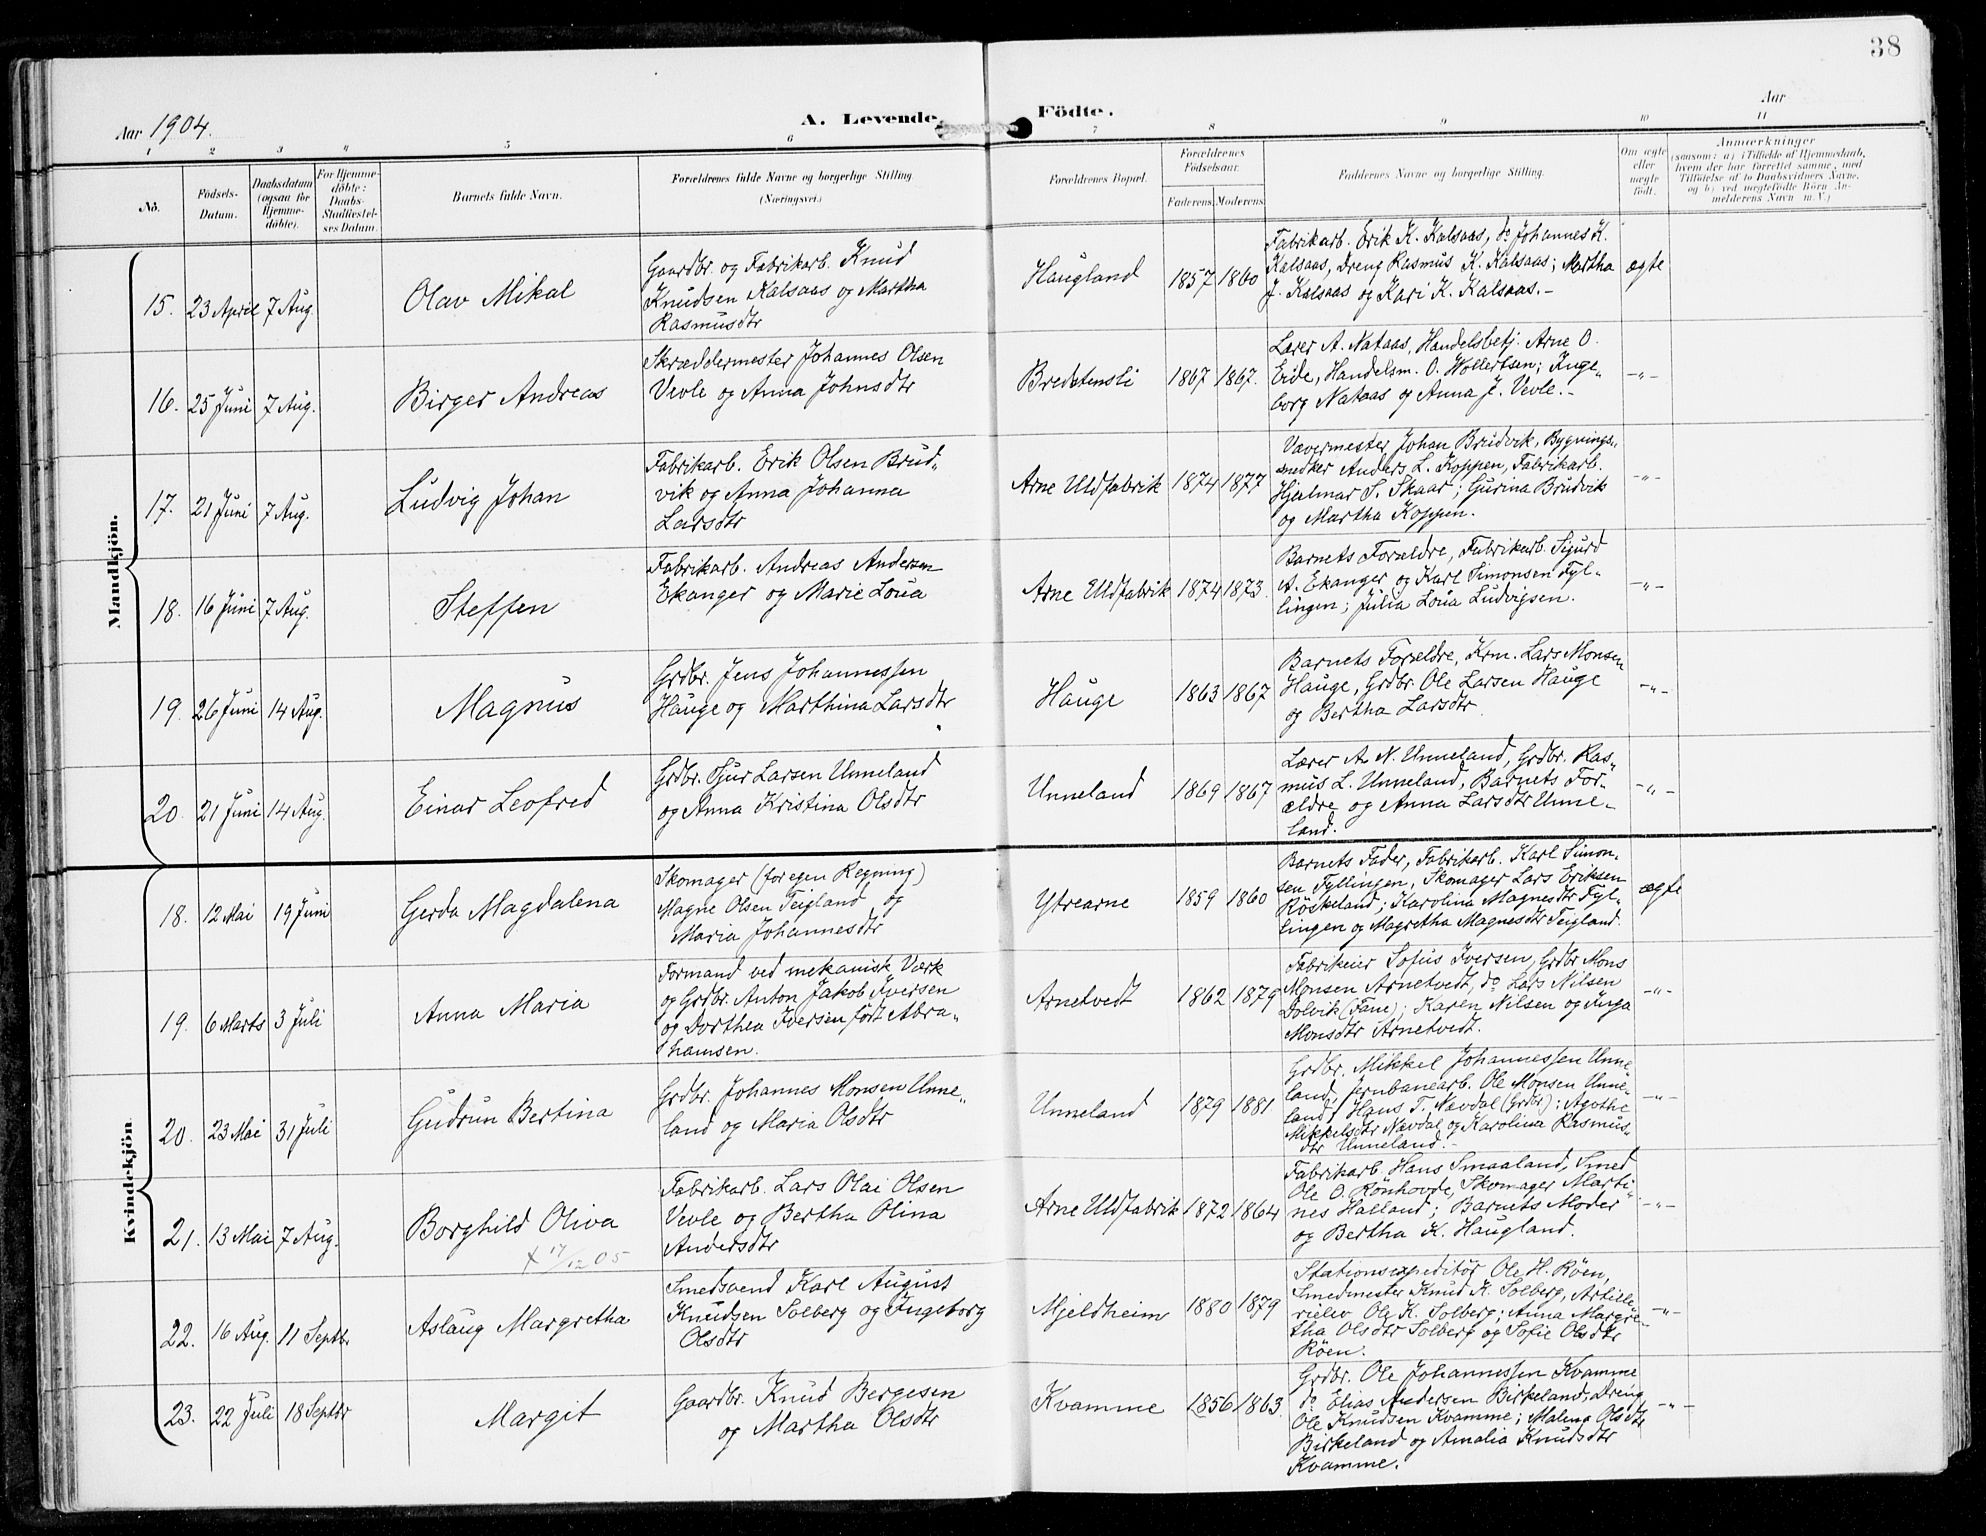 38
Aar 1904. A. Levende Födte. Aar
1 2 3 4 5 6 7 8 9 10 11
No.
Födsels-
Datum.
Daabsdatum
(ogsaa for
Hjemme-
döbte).
For Hjemme-
döbte:
Daabs-
Stadfæstel-
ses Datum.
Barnets fulde Navn.
Forældrenes fulde Navne og borgerlige Stilling.
(Næringsvei.)
Forældrenes Bopæl.
Forældrenes
Födselsaar.
Faderens Moderens
Faddernes Navne og borgerlige Stilling.
Om ægte
eller
uægte
födt.
Anmærkninger
(saasom: a) i Tilfælde af Hjemmedaab,
hvem der har forrettet samme, med
Tilföielse af to Daabsvidners Navne,
og b) ved uægtefödte Börn An-
melderens Navn m.V.)
Mandkjön.
15. 23 April 7 Aug.
Olav Mikal
Gaardbr. og Fabrikarb. Knud
Knudsen Kalsaas og Martha
Rasmusdtr
Haugland
1857 1860
Fabrikarb. Erik K. Kalsaas, do Johannes K.
Kalsaas, Dreng Rasmus K. Kalsaas; Martha
J. Kalsaas og Kari K. Kalsaas.-
ægte
16. 25 Juni 7 Aug.
Birger Andreas
Skræddermester Johannes Olsen
Vevle og Anna Johnsdtr
Bredetensli
1867 1867.
Lærer A. Nataas, Handelsbetj. Arne O.
Eide, Handelsm. O. Wollertsen; Inge-
borg Nataas og Anna J. Vevle.-
-"-
17. 21 Juni 7 Aug.
Ludvig Johan
Fabrikarb. Erik Olsen Brud-
vik og Anna Johanna
Larsdtr
Arne Uldfabrik
1874 1877
Vævermester Johan Brudvik, Bygnings-
snedker Anders L. Koppen, Fabrikarb.
Hjalmar S. Skaar; Gurina Brudvik
og Martha Koppen.
-"-
18. 16 Juni 7 Aug.
Steffen
Fabrikarb. Andreas Andersen
Ekanger og Marie Loua
Arne Uldfabrik
1874 1873.
Barnets Forældre, Fabrikarb. Sigurd
A. Ekanger og Karl Simonsen Fyl-
lingen; Julia Loua Ludvigsen.
-"-
19. 26 Juni 14 Aug.
Magnus
Grdbr. Jens Johannessen
Hauge og Marthina Larsdtr
Hauge
1863 1867
Barnets Forældre, Krm. Lars Monsen
Hauge, Grdbr. Ole Larsen Hauge
og Bertha Larsdtr
-"-
20. 21 Juni 14 Aug.
Einar Leofred
Grdbr. Sjur Larsen Unneland
og Anna Kristina Olsdtr
Unneland
1869 1867
Lærer A. N. Unneland, Grdbr. Ras-
mus L. Unneland, Barnets For-
ældre og Anna Larsdtr Unne-
land.
-"-
Kvindekjön
18. 12 Mai 19 Juni
Gerda Magdalena
Skomager (for egen Regning)
Magne Olsen Teigland og
Maria Johannesdtr
Ytrearne
1859 1860
Barnets Fader, Fabrikarb. Karl Simon-
sen Fyllingen, Skomager Lars Eriksen
Röskeland; Karolina Magnesdtr Fyl-
lingen og Magretha Magnesdtr Teigland.
ægte
19. 6 Marts 3 Juli
Anna Maria
Formand ved mekanisk Værk
og Grdbr. Anton Jakob Iversen
og Dorthea Iversen födt Abra-
hamsen.
Arnetvedt
1862 1879
Fabrikeier Sofus Iversen, Grdbr Mons
Monsen Arnetvedt, do Lars Nilsen
Dolvik (Fane); Karen Nilsen og Inga
Monsdtr Arnetvedt.
-"-
20. 23 Mai 31 Juli
Gudrun Bertina
Grdbr. Johannes Monsen Unne-
land og Maria Olsdtr
Unneland
1879 1881
Grdbr. Mikkel Johannessen Unne-
land, Jernbanearb. Ole Monsen Unne-
land, Hans T. Nævdal (Grdbr); Agothe
Mikkelsdtr Nævdal og Karolina Rasmus-
dtr Unneland.-
-"-
21. 13 Mai 7 Aug.
Borghild Oliva
+ 17/12 05
Fabrikarb. Lars Olai Olsen
Vevle og Bertha Olina
Andersdtr
Arne Uldfabrik
1872 1864
Fabrikarb. Hans Smaaland, Smed
Ole O. Rönhovde, Skomager Marti-
nes Halland; Barnets Moder
og Bertha K. Haugland.
-"-
22. 16 Aug. 11 Septbr.
Aslaug Margretha
Smedsvend Karl August
Knudsen Solberg og Ingeborg
Olsdtr
Mjeldheim
1880 1879
Stationsexpeditör Ole H. Röen,
Smedmester Knud K. Solberg, Artille-
rielev Ole K. Solberg; Anna Margre-
tha Olsdtr Solberg og Sofie Olsdtr
Röen.
-"-
23. 22 Juli 18 Septbr
Margit
Gaardbr. Knud Bergesen
og Martha Olsdtr
Kvamme
1856 1863.
Grdbr. Ole Johannessen Kvamme
do Elias Andersen Birkeland, Dreng
Ole Knudsen Kvamme; Malena Olsdtr
Birkeland og Amalia Knudsdtr
Kvamme.
-"-